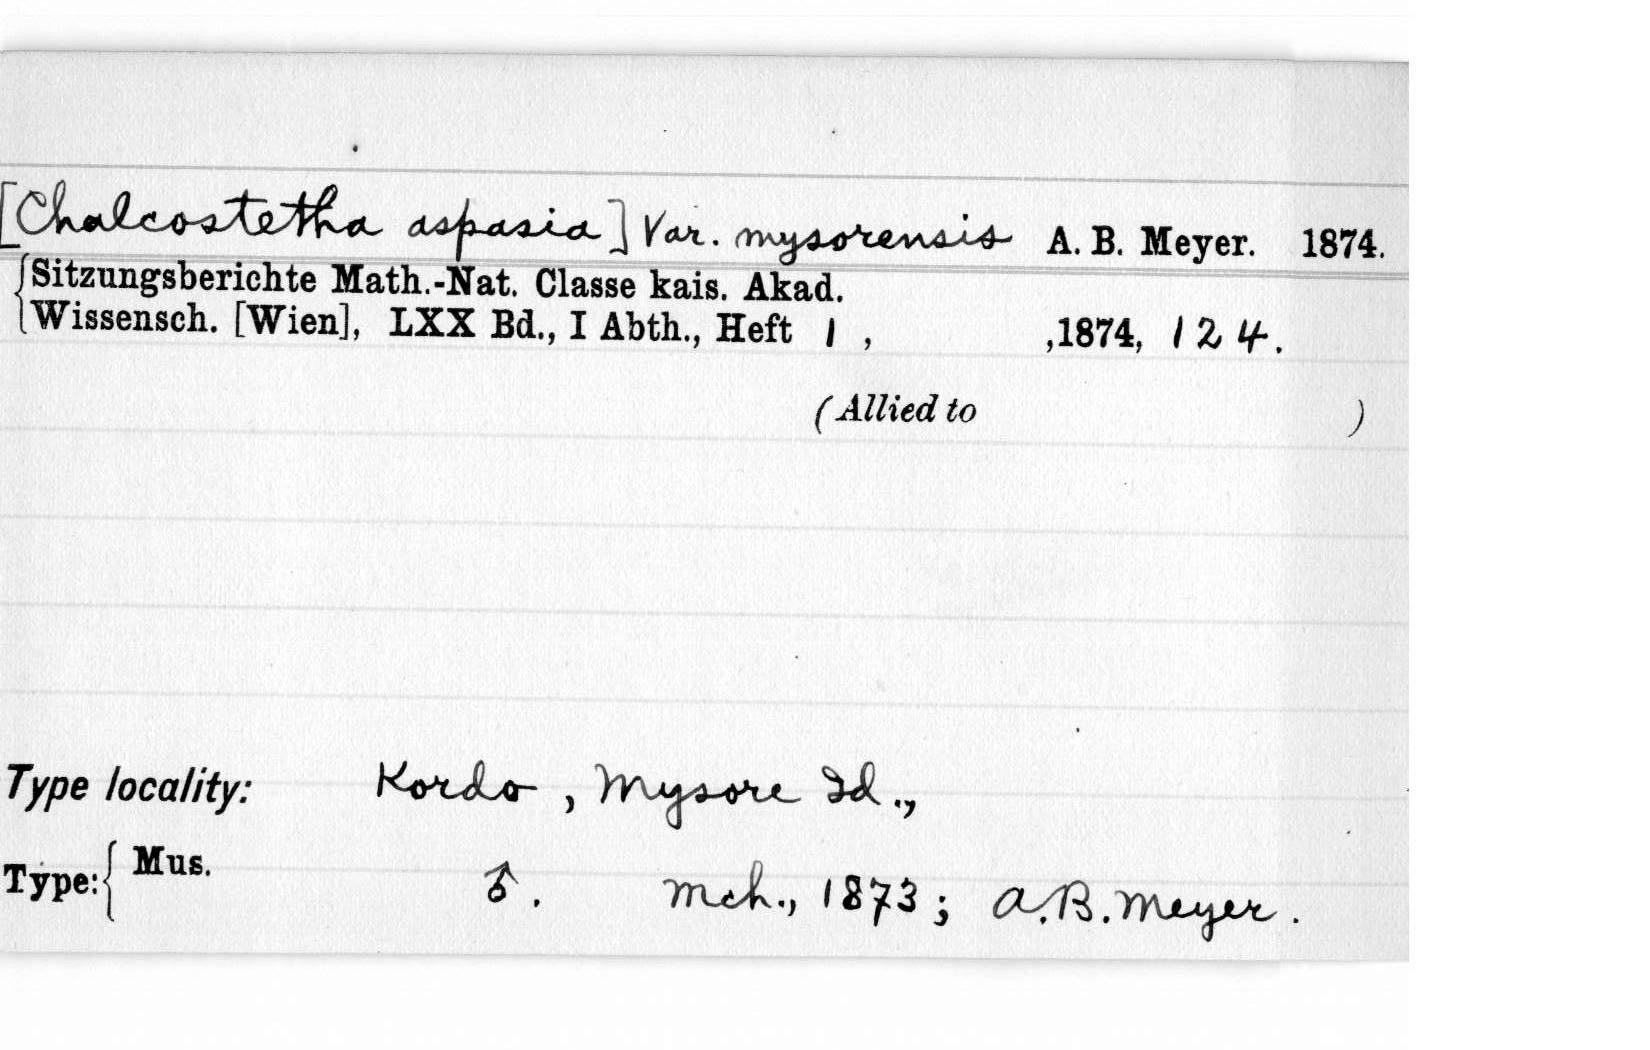 [Chalcostetha aspasia] Var. mysorensis A. B. Meyer. 1874.
Sitzungsberichte Math.-Nat. Classe kais. Akad.
Wissensch. [Wien], LXX Bd., I Abth., Heft 1 , ,1874, 124.
(Allied to )
Type locality: Kordo, Mysore Id.,
Type: { Mus. ♂. Mch., 1873; A.B. Meyer.